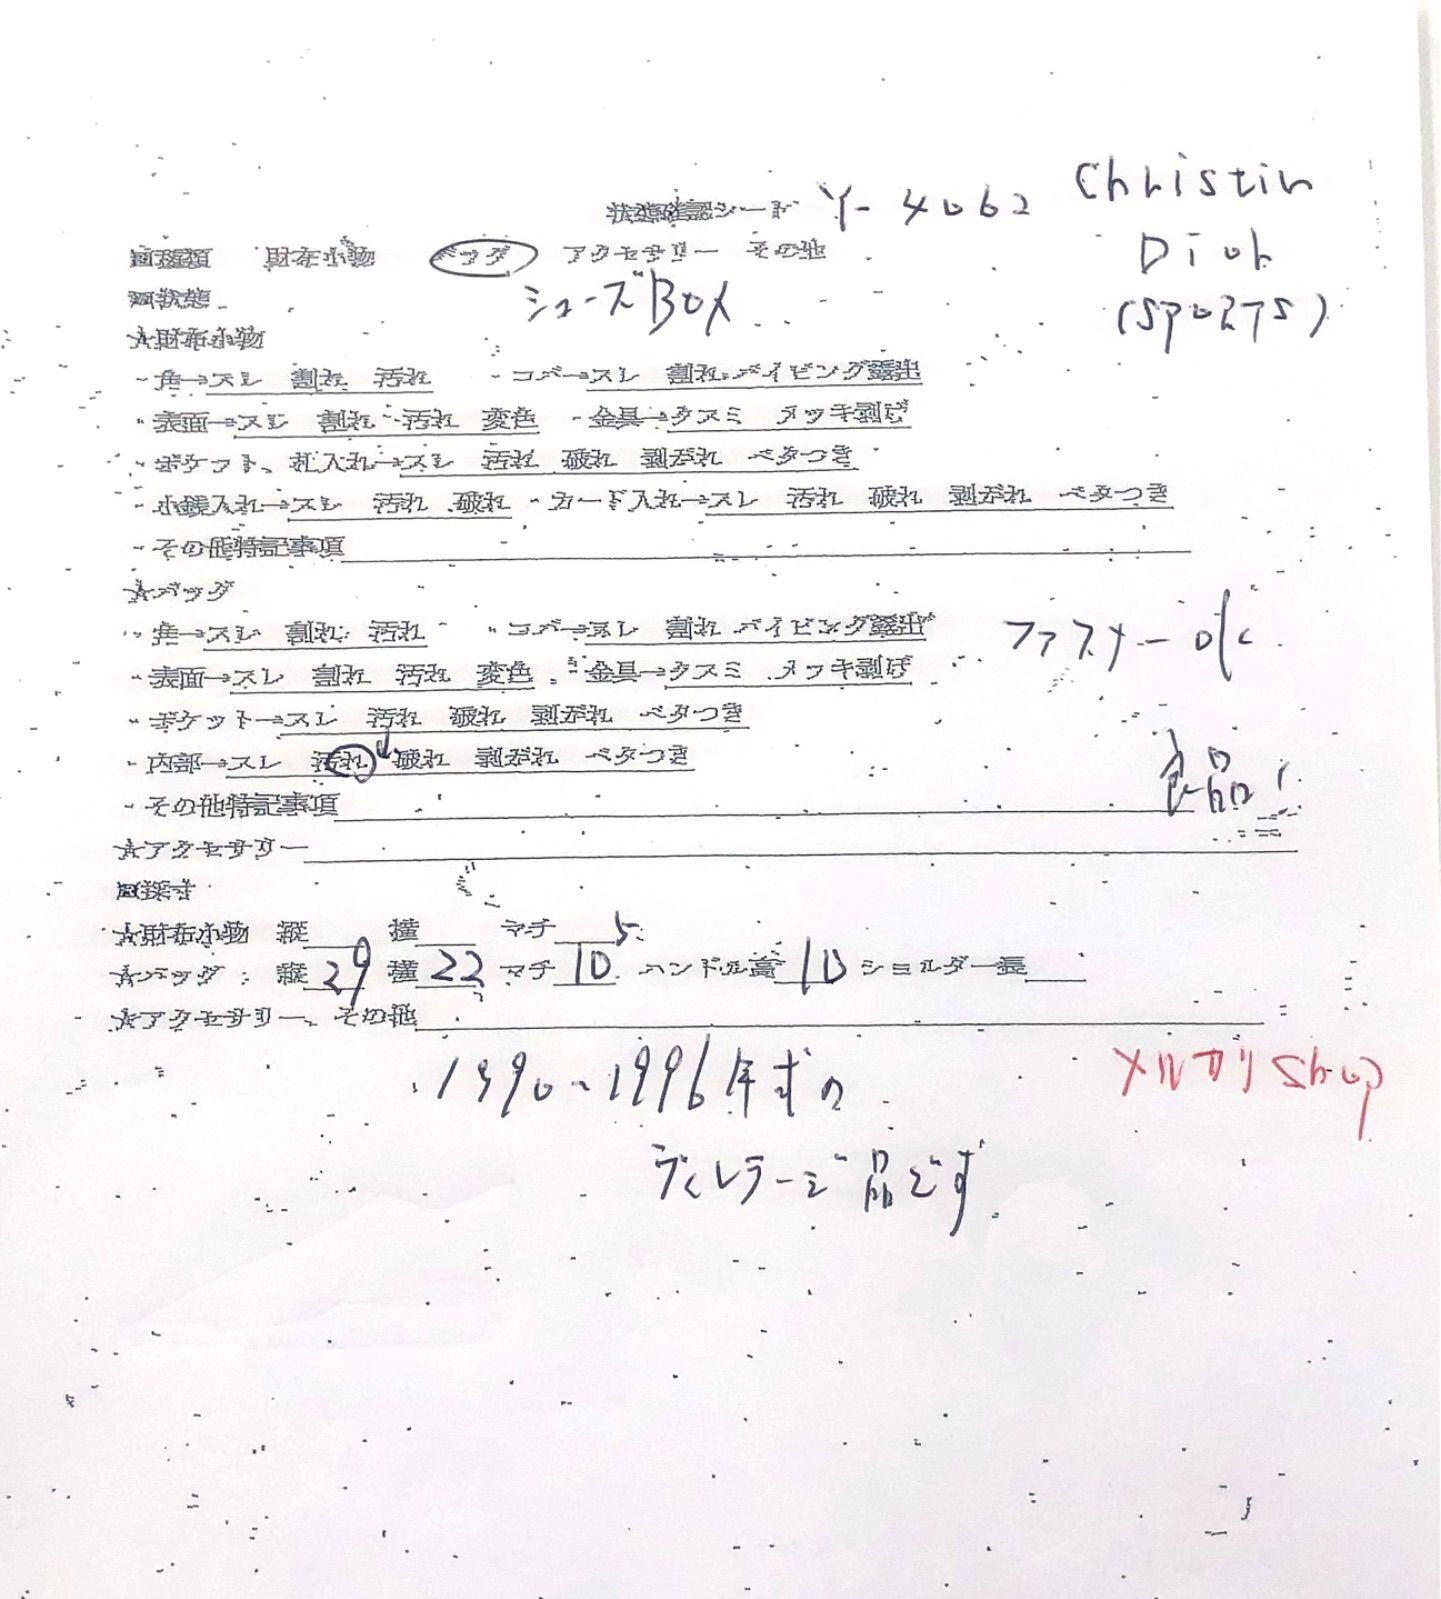 状態確認シート Y-4062 Christin
Dior
(SPORTS)
■種類 財布小物 バッグ アクセサリー その他
シューズBOX
■状態
★財布小物
・角→スレ 割れ 汚れ ・コバ→スレ 割れ パイピング露出
・表面→スレ 割れ 汚れ 変色 ・金具→クスミ メッキ剥げ
・ポケット、札入れ→スレ 汚れ 破れ 剥がれ ベタつき
・小銭入れ→スレ 汚れ 破れ ・カード入れ→スレ 汚れ 破れ 剥がれ ベタつき
・その他特記事項
★バッグ
・角→スレ 割れ 汚れ ・コバ→スレ 割れ パイピング露出
ファスナーOK
・表面→スレ 割れ 汚れ 変色 ・金具→クスミ メッキ剥げ
・ポケット→スレ 汚れ 破れ 剥がれ ベタつき
・内部→スレ 汚れ 破れ 剥がれ ベタつき
良品
・その他特記事項
★アクセサリー
■採寸
★財布小物 縦 横 マチ
★バッグ:縦 29 横 22 マチ 10.5 ハンドル高 10 ショルダー長
★アクセサリー、その他
1990〜1996年式の
メルカリShop
ヴィンテージ品です